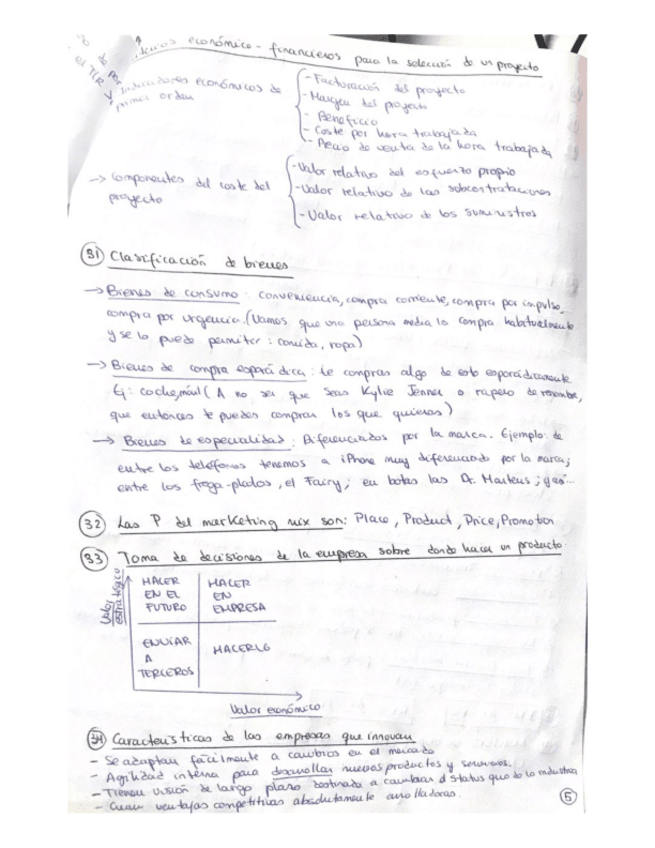 económico-financieros para la selección de un proyecto
el TIR
Indicadores económicos de
primer orden
- Facturación del proyecto
- Margen del proyecto
- Beneficio
- Coste por hora trabajada
- Precio de venta de la hora trabajada
→ Componentes del coste del
proyecto
- Valor relativo del esfuerzo propio
- Valor relativo de las subcontrataciones
- Valor relativo de los suministros
31 Clasificación de bienes
→ Bienes de consumo: conveniencia, compra corriente, compra por impulso,
compra por urgencia. (Vamos que una persona media lo compra habitualmente
y se lo puede permitir: comida, ropa)
→ Bienes de compra esporádica: te compras algo de esto esporádicamente
Ej: coche, móvil (A no ser que seas Kylie Jenner o rapero de renombre,
que entonces te puedes comprar los que quieras)
→ Bienes de especialidad: Diferenciados por la marca. Ejemplo: de
entre los teléfonos tenemos a iPhone muy diferenciado por la marca;
entre los frega-platos, el Fairy; en botas las Dr. Martens;
32 Las P del marketing mix son: Place, Product, Price, Promotion
33 Toma de decisiones de la empresa sobre donde hacer un producto
Valor estratégico
HACER EN EL FUTURO
HACER EN EMPRESA
ENVIAR A TERCEROS
HACERLO
Valor económico
34 Características de las empresas que innovan
- Se adaptan fácilmente a cambios en el mercado
- Agilidad interna para desarrollar nuevos productos y servicios.
- Tienen visión de largo plazo destinada a cambiar el status quo de la industria
- Crean ventajas competitivas absolutamente arrolladoras.
5